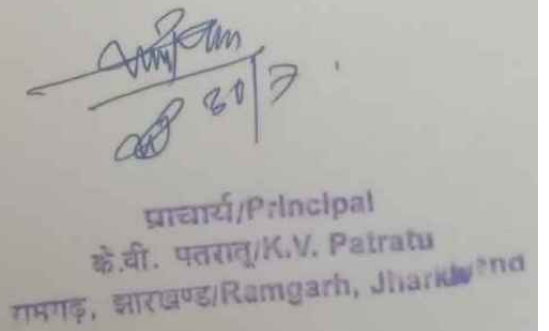 30/7
प्राचार्य/Principal
के.वी. पतरातू/K.V. Patratu
रामगढ़, झारखण्ड/Ramgarh, Jharkhand